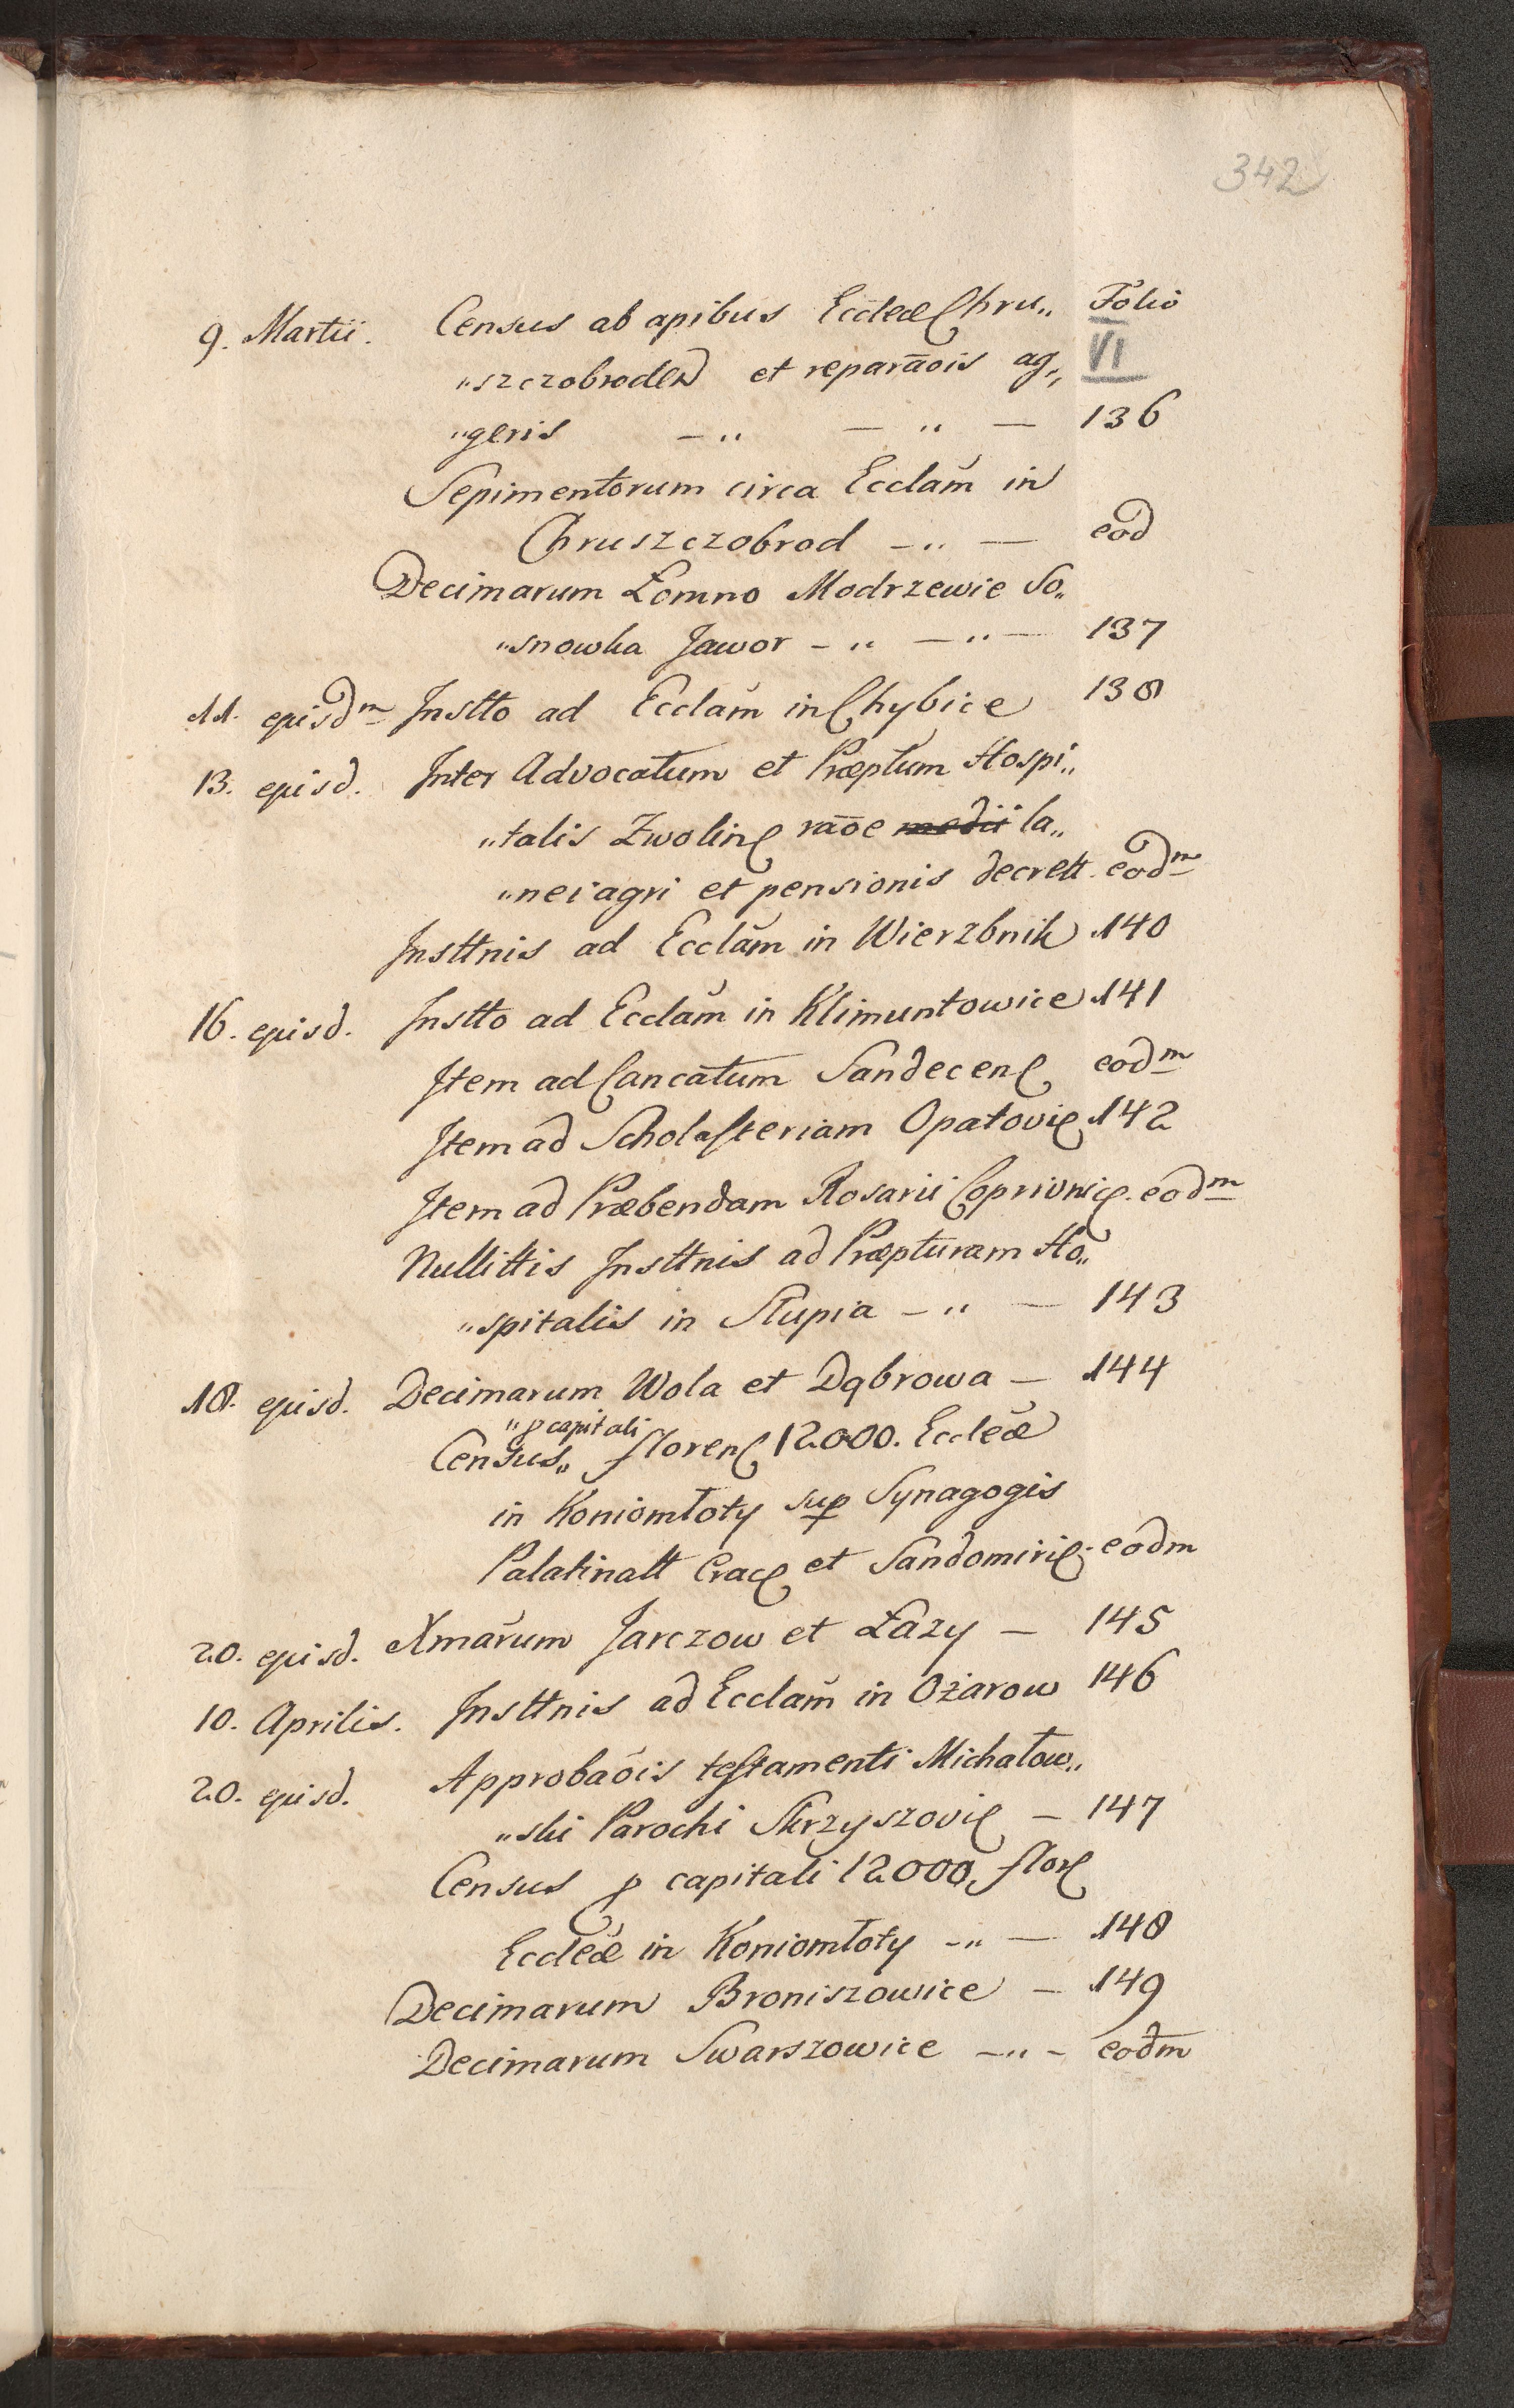 342
Folio
9. Martii. Census ab apibus Eccleæ Chru„
VI
„szczobroden et reparāois ag„
„geris — „ — „ — 136
Sepimentorum circa Ecclam̃ in
Chruszczobrod — „ — eod
Decimarum Łomno Modrzewie So„
„snowka Jawor — „ — „ — 137
11. ejusdm Instto ad Ecclam̃ in Chybice 138
13. ejusd. Inter Advocatum et Præptum Hospi„
„talis Zwolin rāōe medii la„
„nei agri et pensionis decrett. eodm
Insttnis ad Ecclam̃ in Wierzbnik 140
16. ejusd. Instto ad Ecclam̃ in Klimuntowice 141
Item ad Cancātum Sandecen eodm
Item ad Scholasteriam Opatovi 142
Item ad Præbendam Rosarii Coprivnic. eodm
Nullittis Insttnis ad Præpturam Ho„
„spitalis in Słupia — „ — 143
18. ejusd. Decimarum Wola et Dąbrowa — 144
„ p capitali
Census„ floren 12000. Eccleæ
in Koniomłoty sup Synagogis
Palatinatt Crac et Sandomiri. eodm
20. ejusd. Xmārum Jarczow et Łazy — 145
10. Aprilis. Insttnis ad Ecclam̃ in Ożarow 146
20. ejusd. Approbāois testamenti Michałow„
„ski Parochi Skrzyszovi — 147
Census p capitali 12000, flor
Eccleæ in Koniomłoty — „ — 148
Decimarum Broniszowice — 149
Decimarum Swarszowice — „ — eodm